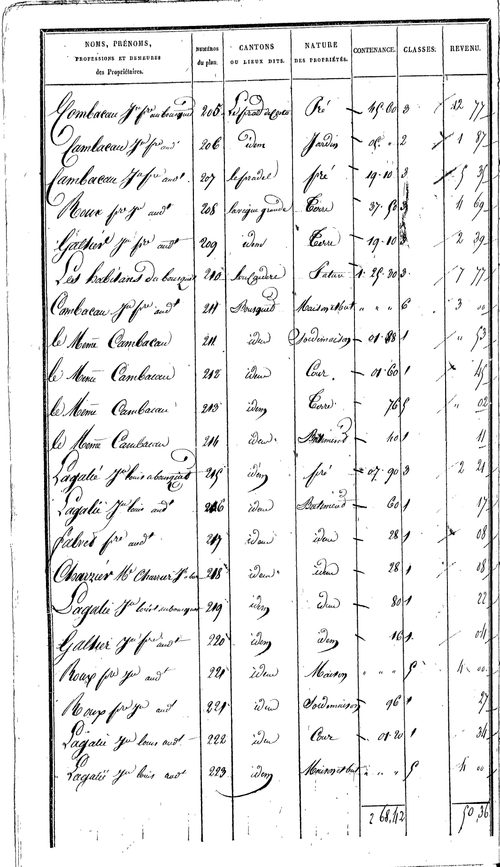 NOMS, PRÉNOMS, PROFESSIONS ET DEMEURES des Propriétaires. NUMÉROS du plan. CANTONS OU LIEUX DITS. NATURE DES PROPRIÉTÉS. CONTENANCE. CLASSES. REVENU.
Combacau Jn fre au bousquet 205 Pré 45 60 3 12 77
Cambacau Jn fre audt 206 idem Jardin 05 " 2 1 87
Cambacau Jn fre audt 207 le pradel pré 19 10 3 5 35
Roux fre jn audt 208 la vigne grande Terre 37 50 3 4 69
Galtier Jn fre audt 209 idem Terre 19 10 3 2 39
Les habitans du bousquet 210 Pature 1 25 30 3 7 77
Combacau Jn fre audt 211 Bousquet Maison et but " " " 6 3 "
le Même Cambacau 211 idem Sol de maison 01 88 1 " 53
le Même Cambacau 212 idem Cour 01 60 1 45
le Même Cambacau 213 idem Terre 76 5 " 02
le Même Cambacau 214 idem Batiment 40 1 11
Lagalié Jn louis a bousquet 215 idem pré 07 90 3 2 21
Lagalié Jn louis audt 216 idem Batiment 60 1 17
Fabres fre audt 217 idem idem 28 1 08
Charrier 218 idem idem 28 1 08
Lagalié Jn louis au bousquet 219 idem idem 80 1 22
Galtier Jn fre audt 220 idem idem 16 1 04
Roux fre jn audt 221 idem Maison " " " 5 4 "
Roux fre jn audt 221 idem Sol de maison 96 1 27
Lagalié Jn louis audt 222 idem Cour 01 20 1 34
Lagalié Jn louis audt 223 idem Maison et but " " " 5 4 "
2 68,42 50,36